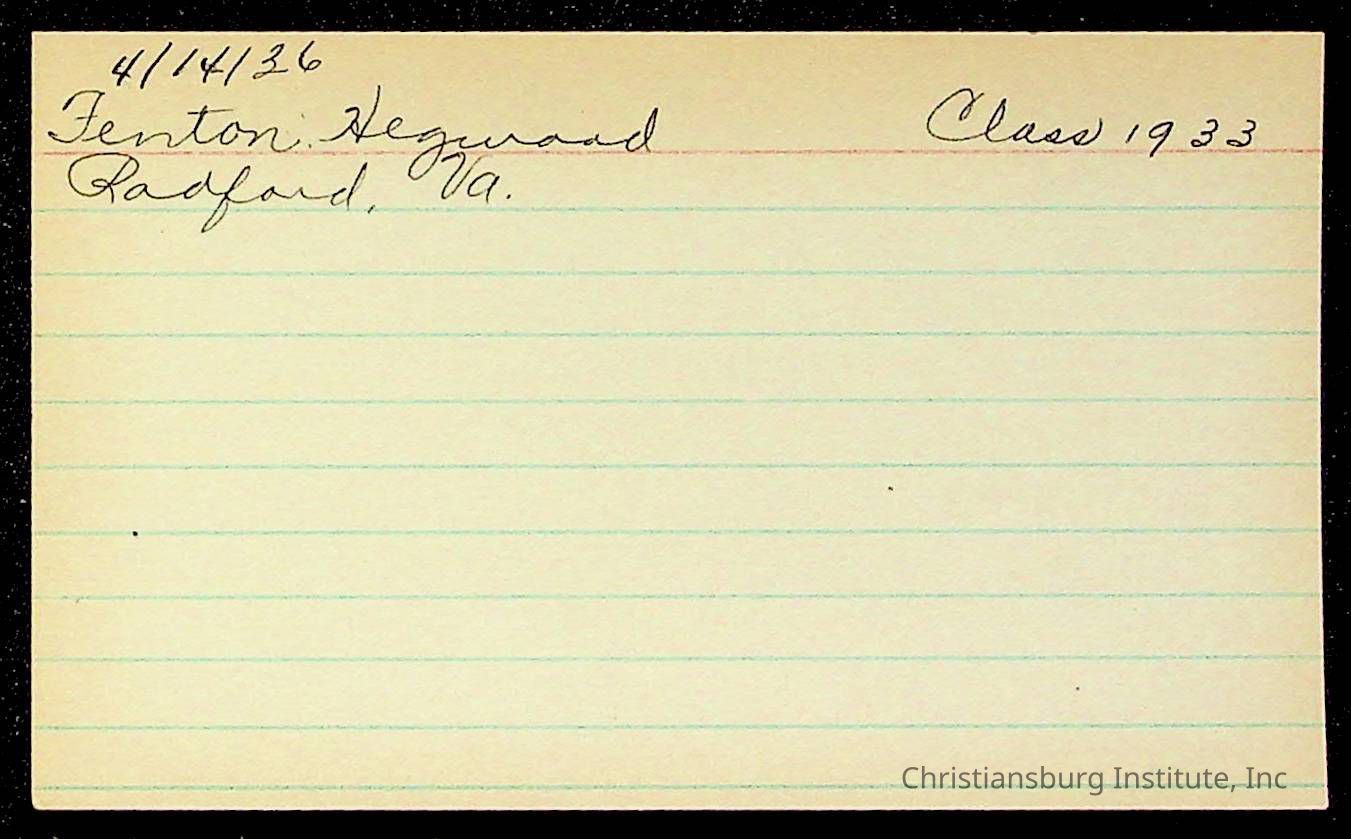 4/14/36
Fenton Hegwood Class 1933
Radford, Va.
Christiansburg Institute, Inc